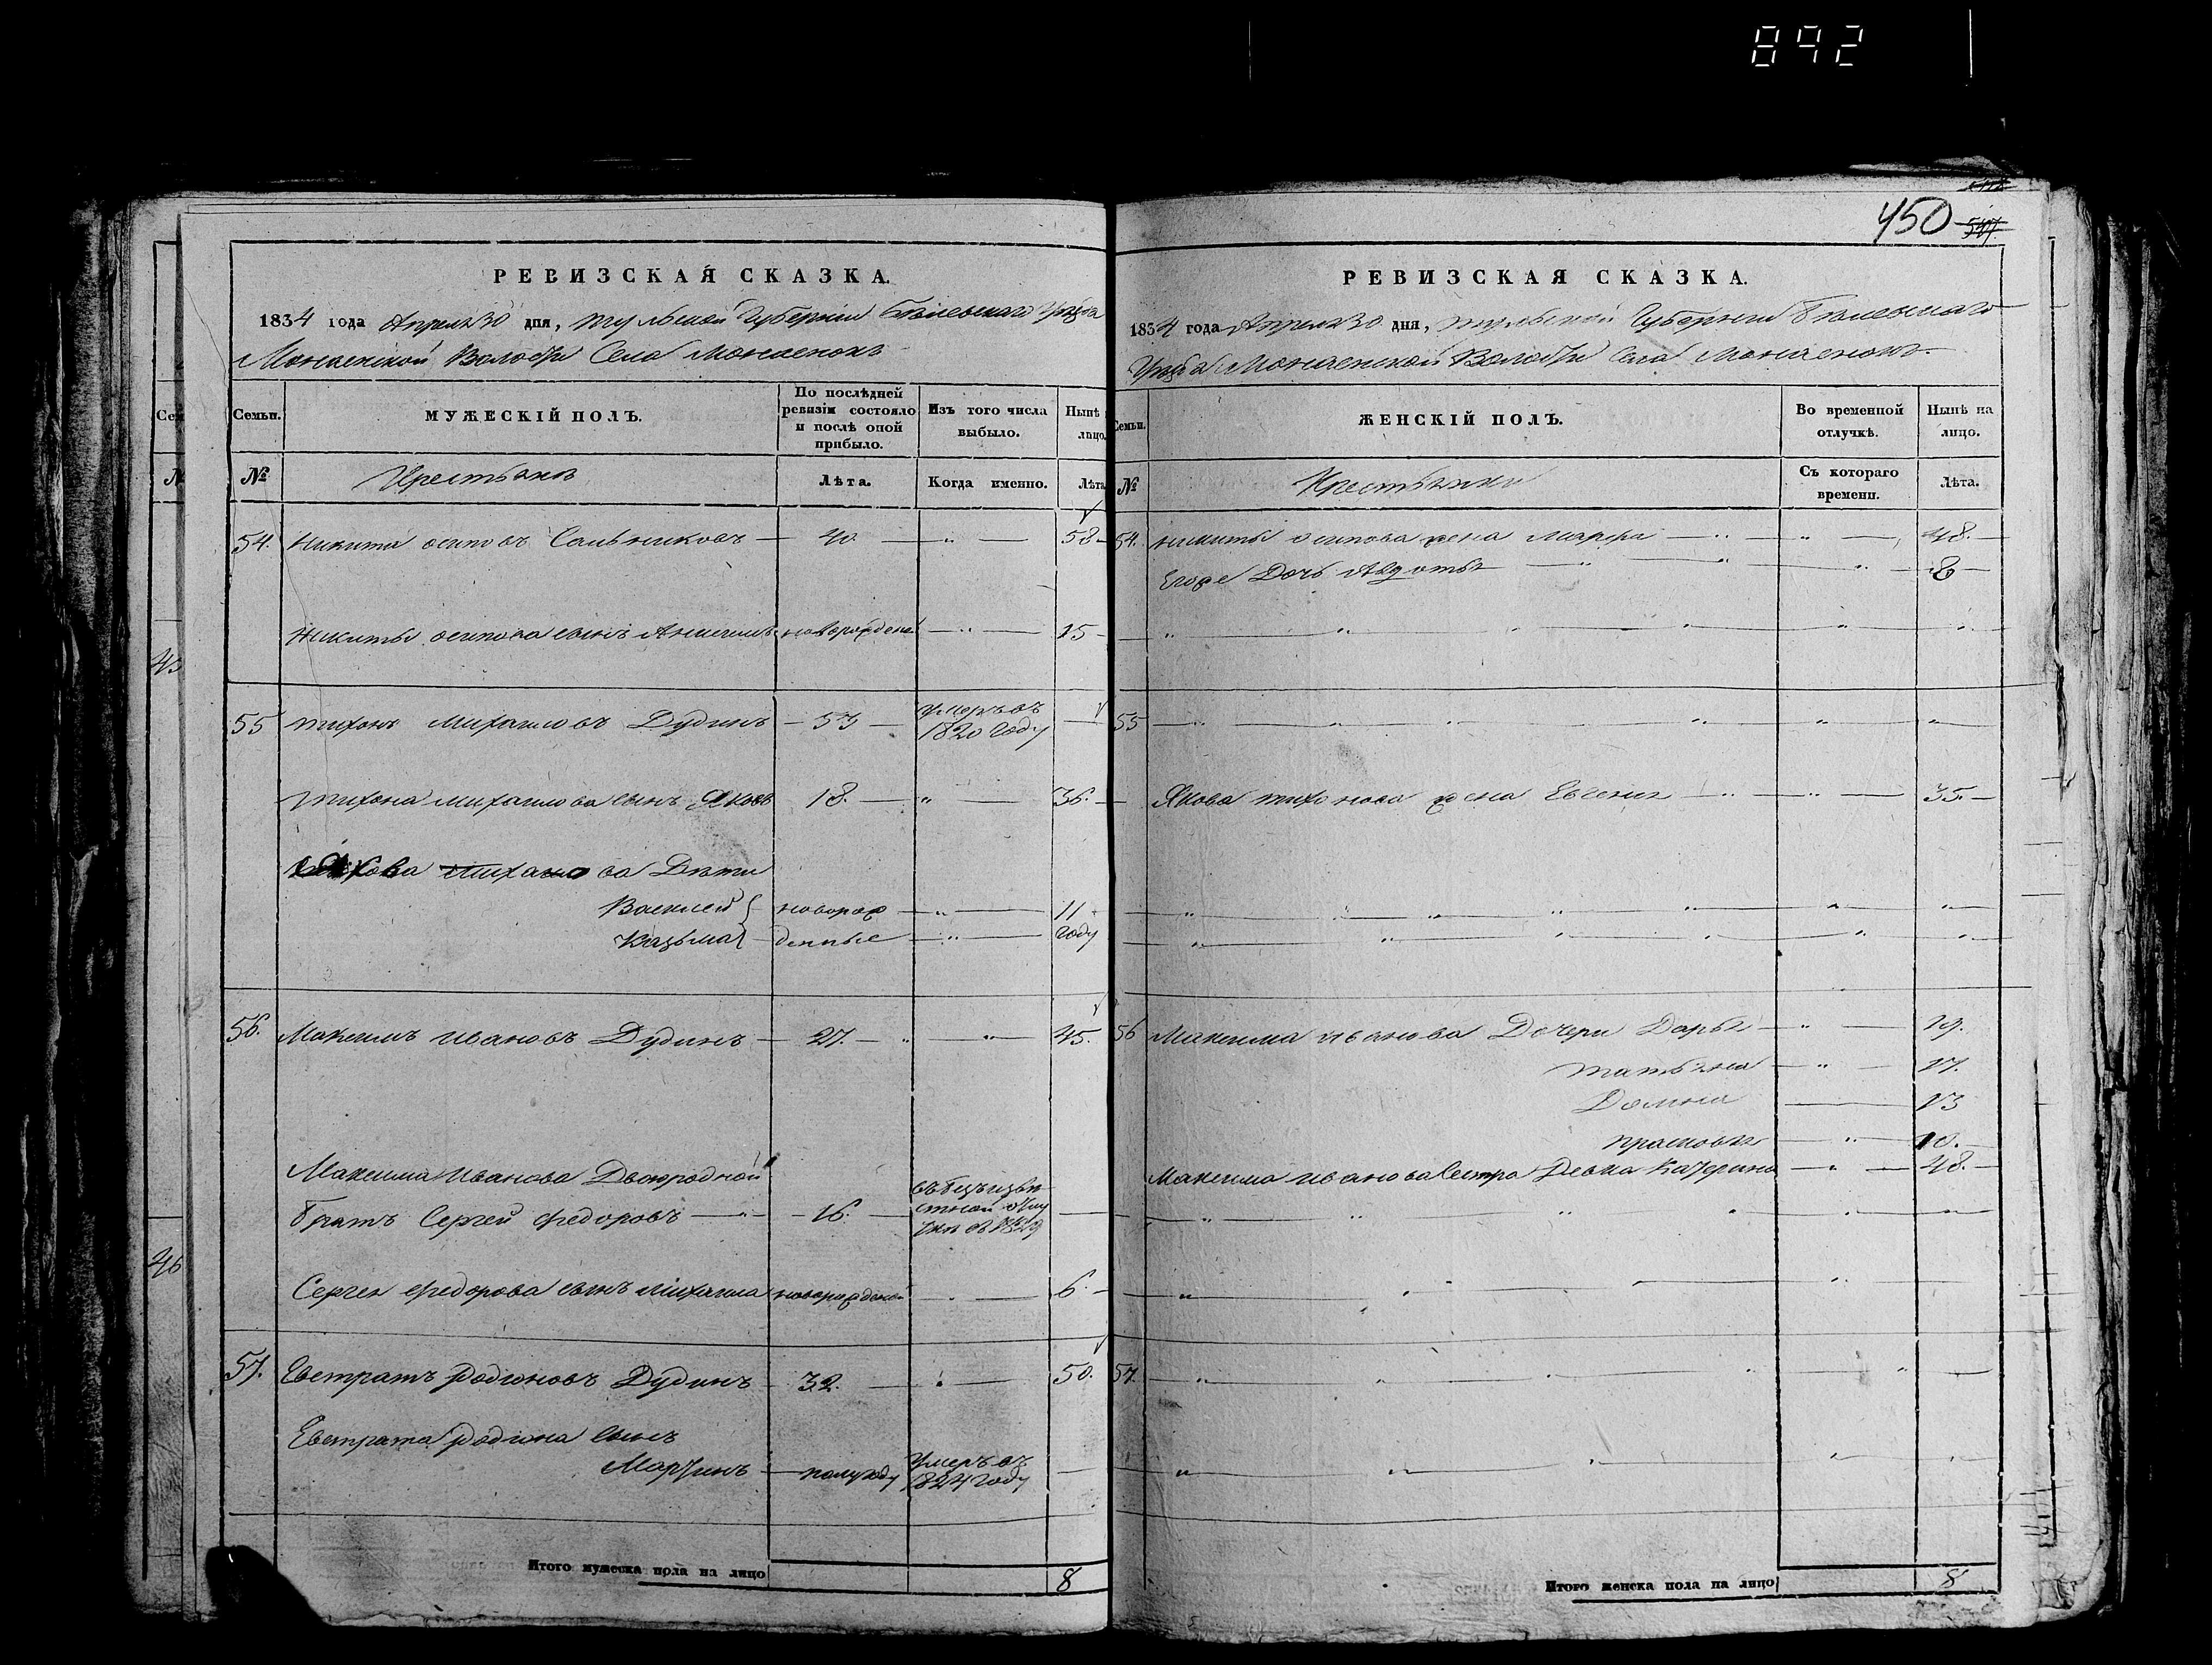 892
450
РЕВИЗСКАЯ СКАЗКА.
1834 года Апреля 30 дня, Тульской Губернии Белевскаго Уезда
Монаенской Волости Села Монаенокъ
Семьи.
МУЖЕСКІЙ ПОЛЪ.
По послѣдней ревизіи состояло и послѣ оной прибыло.
Изъ того числа выбыло.
Нынѣ
лицо.
№
Крестьянъ
Лѣта.
Когда именно.
Лѣта
54. Никита осиповъ Сальниковъ — 40 — „ — 58
Никиты осипова сынъ Анисимъ новорожденъ — „ — 15
55 тихонъ Михаиловъ Дудинъ — 53 — умеръ въ 1820 году —
тихона михаилова сынъ Яковъ 18. — „ — 36.
Якова тихано ва Дети
Василей новорож — „ — 11
Казьма денные — „ — году
56. Максимъ Ивановъ Дудинъ — 27. — „ — 45.
Максима Иванова Двоюродной
братъ Сергей Федоровъ — „ — 16. —
Сергея Федорова сынъ михаила новорожденой — 6.
57. Евстратъ родионовъ Дудинъ 32. — „ — 50.
Евстрата родиона сынъ
Мартинъ — полугоду умеръ въ 1824 году —
Итого мужеска пола на лицо 8
РЕВИЗСКАЯ СКАЗКА.
1834 года Апреля 30 дня, тульской Губернии Белевскаго
Уезда Монаенской Волости Села Монаенокъ.
Семьи.
ЖЕНСКІЙ ПОЛЪ.
Во временной отлучкѣ.
Нынѣ на лицо.
№
Крестьянки
Съ котораго времени.
Лѣта.
54. никиты осипова жена Марфа — „ — 48.
Егоже Дочь Авдотья — „ — 8
55
Якова тихонова жена Евгения — „ — 35.
56 Максима иванова Дочери Дарья — „ — 19.
татьяна — „ — 17.
Домна — 13
прасковья — „ — 10.
Максима иванова Сестра Девка Катерина — „ — 48.
57.
Итого женска пола на лицо 8